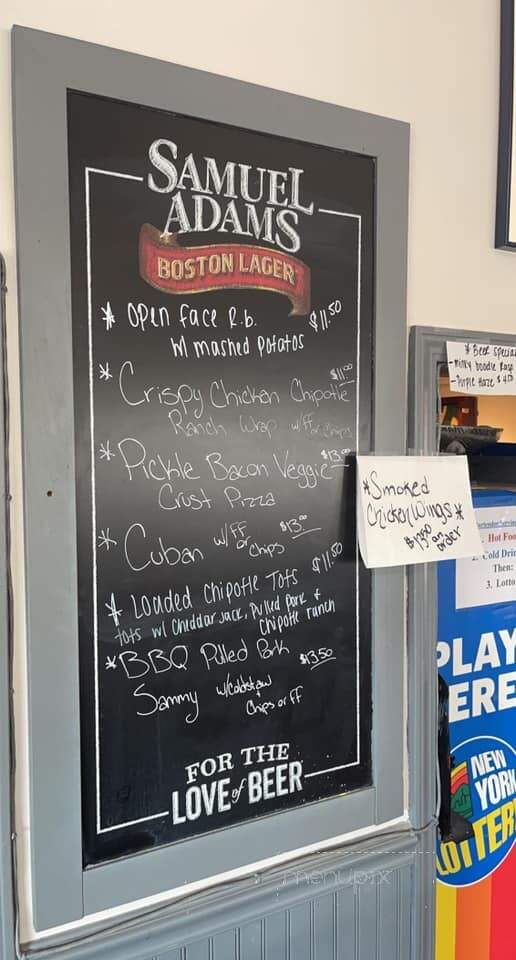 SAMUEL
ADAMS
BOSTON LAGER
* OPEN face R.b. $11.50
w/ mashed Potatos
* Crispy Chicken Chipotle $11.00
Ranch Wrap w/ff or chips
* Pickle Bacon Veggie $13.00
Crust Pizza
* Cuban w/FF or chips $13.00
* Loaded Chipotle Tots $11.50
tots w/ Cheddar Jack, Pulled Pork &
Chipotle ranch
* BBQ Pulled Pork $13.50
Sammy w/Coldslaw
+
Chips or FF
FOR THE
LOVE of BEER
*Smoked
Chicken Wings*
an
order
* Beer Special
- Purple Haze
Hot Foo
2. Cold Drin
Then:
3. Lotto
PLAY
ERE
NEW
YORK
LOTTER
menupix